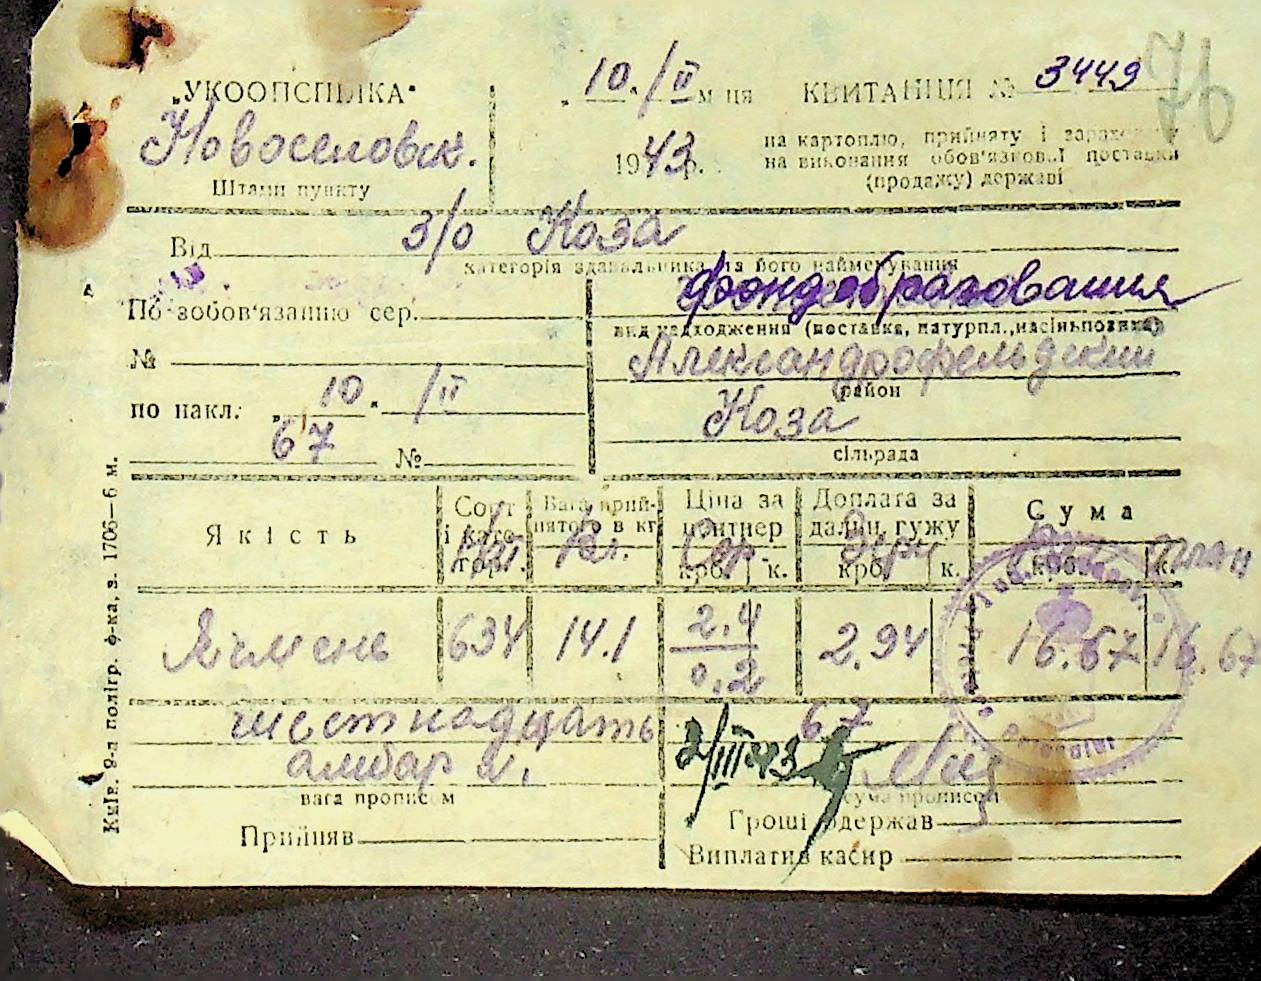 „УКООПСПІЛКА"
Новоселовск.
Штамп пункту
„10" /II м-ця
1943 р.
КВИТАНЦІЯ № 3449
76
на картоплю, прийняту і зараховану
на виконання обов'язкової поставки
(продажу) державі
Від з/о Коза
категорія здавальника та його найменування
По зобов'язанню сер.
№
по накл. „10" /II
67 №
фондобразования
вид надходження (поставка, натурпл., насіньпозика)
Александрофельдский
район
Коза
сільрада
Якість
Сорт і катего- гор.
Вага прий- нятого в кг
Ціна за центнер
крб. к.
Доплата за дальн. гужу
крб. к.
Сума
крб. к.
Ячмень 634 14.1 2.4 0.2 2.94 16.67 16.67
шестнадцать 67
амбар
вага прописом
2/III-43
сума прописом
Прийняв
Гроші одержав
Виплатив касир
Київ. 9-а полігр. ф-ка, з. 1706—6 м.